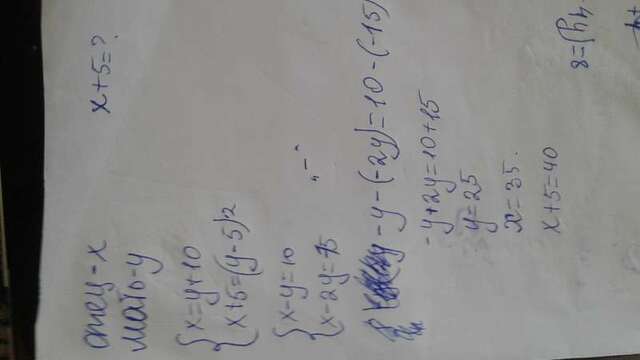 отец - x
мать - y
x+5=?
{x=y+10
{x+5=(y-5)2
{x-y=10
{x-2y=-15
"-"
-y-(-2y)=10-(-15)
-y+2y=10+15
y=25
x=35.
x+5=40
4y)=8